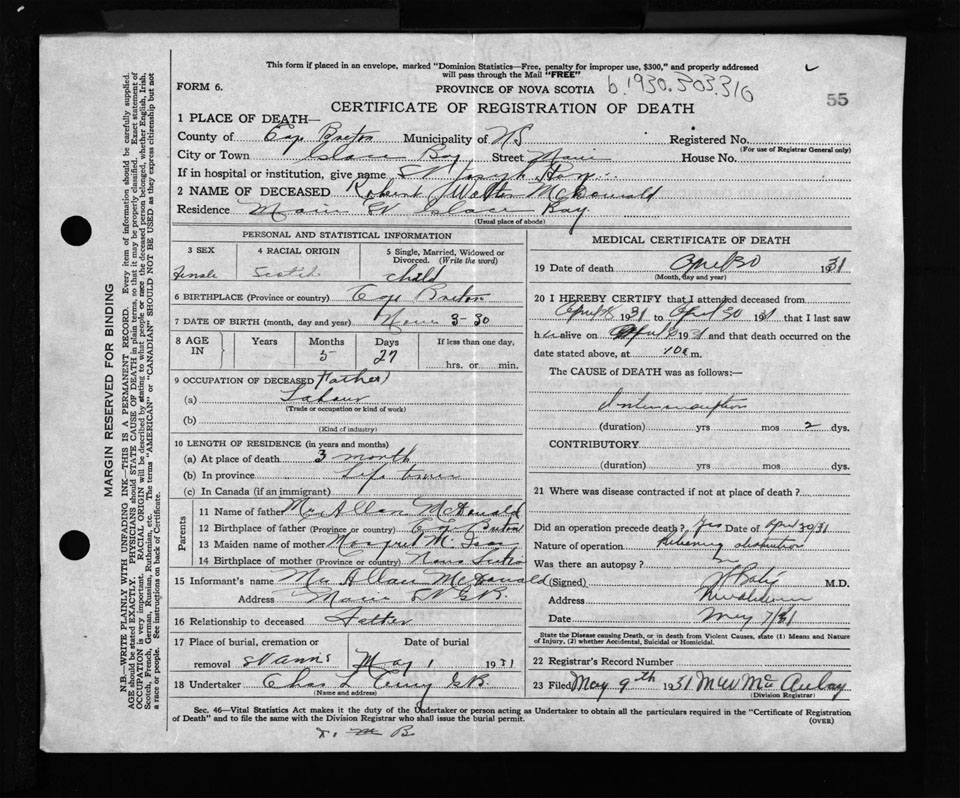 This form if placed in an envelope, marked "Dominion Statistics—Free, penalty for improper use, $300," and properly addressed
will pass through the Mail "FREE"
FORM 6.
PROVINCE OF NOVA SCOTIA
b.1930.303.316
55
CERTIFICATE OF REGISTRATION OF DEATH
1 PLACE OF DEATH—
County of Cape Breton Municipality of NS Registered No.
(For use of Registrar General only)
City or Town Glace Bay Street Main House No.
If in hospital or institution, give name St Joseph Hosp
2 NAME OF DECEASED Robert Walter McDonald
Residence Main St Glace Bay
(Usual place of abode)
PERSONAL AND STATISTICAL INFORMATION
3 SEX 4 RACIAL ORIGIN 5 Single, Married, Widowed or
Divorced. (Write the word)
Female Scotch Child
6 BIRTHPLACE (Province or country) Cape Breton
7 DATE OF BIRTH (month, day and year) 3-30
8 AGE IN Years Months Days If less than one day,
5 27 hrs. or min.
9 OCCUPATION OF DECEASED (Father)
(a) Labour
(Trade or occupation or kind of work)
(b)
(Kind of industry)
10 LENGTH OF RESIDENCE (in years and months)
(a) At place of death 3 month
(b) In province Life time
(c) In Canada (if an immigrant)
Parents
11 Name of father Mr Allan McDonald
12 Birthplace of father (Province or country) C Breton
13 Maiden name of mother Margret Mc Isac
14 Birthplace of mother (Province or country) Nova Scotia
15 Informant's name Mr Allan McDonald
Address Main St G.B.
16 Relationship to deceased Father
17 Place of burial, cremation or Date of burial
removal St Anns May 1 1931
18 Undertaker Chas L G B
(Name and address)
MEDICAL CERTIFICATE OF DEATH
19 Date of death April 30 1931
(Month, day and year)
20 I HEREBY CERTIFY that I attended deceased from
April 1931 to April 30 1931 that I last saw
h alive on April 1931 and that death occurred on the
date stated above, at 10 m.
The CAUSE of DEATH was as follows:—
Intussusception
(duration) yrs mos 2 dys.
CONTRIBUTORY
(duration) yrs mos dys.
21 Where was disease contracted if not at place of death?
Did an operation precede death? Yes Date of Apr 30/31
Nature of operation Relieving obstruction
Was there an autopsy? no
(Signed) M.D.
Address
Date May 7/31
State the Disease causing Death, or in death from Violent Causes, state (1) Means and Nature
of Injury, (2) whether Accidental, Suicidal or Homicidal.
22 Registrar's Record Number
23 Filed May 9th 1931 M W McAulay
(Division Registrar)
Sec. 46—Vital Statistics Act makes it the duty of the Undertaker or person acting as Undertaker to obtain all the particulars required in the "Certificate of Registration
of Death" and to file the same with the Division Registrar who shall issue the burial permit.
(OVER)
MARGIN RESERVED FOR BINDING
N.B.—WRITE PLAINLY WITH UNFADING INK—THIS IS A PERMANENT RECORD. Every item of information should be carefully supplied.
AGE should be stated EXACTLY. PHYSICIANS should STATE CAUSE OF DEATH in plain terms, so that it may be properly classified. Exact statement of
OCCUPATION is very important. RACIAL ORIGIN will be described by stating to what people or race the deceased person belonged, whether English, Irish,
Scotch, French, German, Russian, Ruthenian, etc. The terms "AMERICAN" or "CANADIAN" SHOULD NOT BE USED as they express citizenship but not
a race or people. See instructions on back of Certificate.